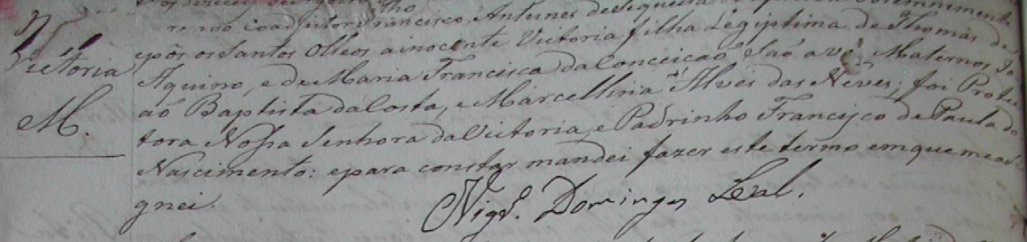 Victoria
M.
Coadjutor Francisco Antunes de Siqueira
epôs os Santos Oleos ainocente Victoria filha Legiptima de Thomás de
Aquino, e de Maria Francisca daConceicaõ Saõ avós Maternos Jo-
aõ Baptista daCosta, e Marcellina Alves das Neves; foi Prote-
tora Nossa Senhora daVictoria, e Padrinho Francisco de Paula do
Nascimento: epara constar mandei fazer este termo emque measi-
gnei.
Vigr.º Domingos Leal.